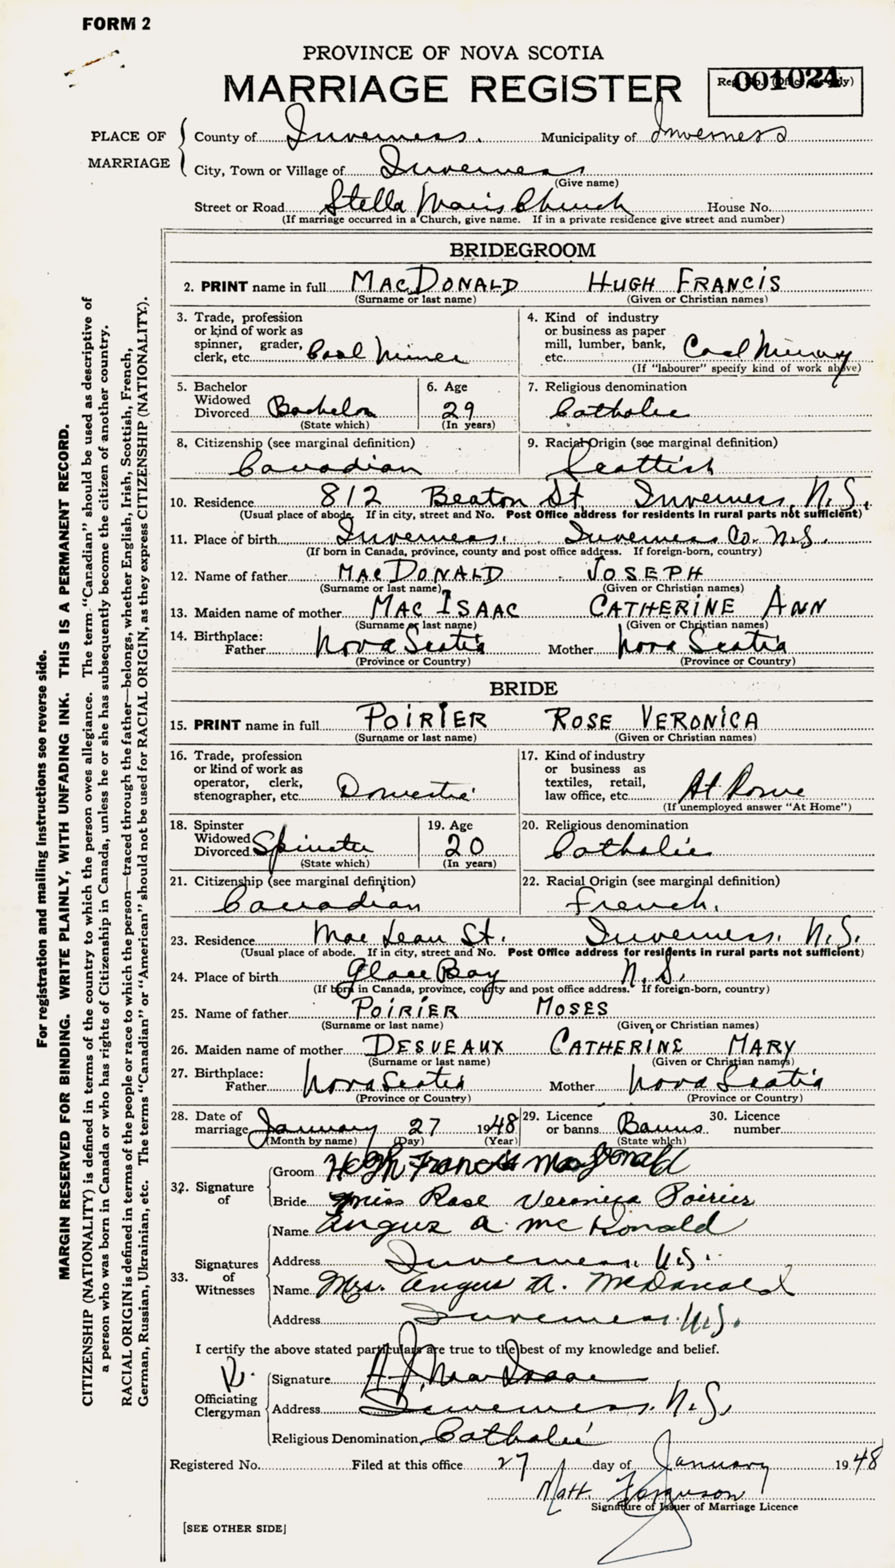 FORM 2
PROVINCE OF NOVA SCOTIA
MARRIAGE REGISTER
Reg. No. (Office use only) 001024
PLACE OF MARRIAGE
County of Inverness. Municipality of Inverness
City, Town or Village of Inverness
(Give name)
Street or Road Stella Maris Church House No.
(If marriage occurred in a Church, give name. If in a private residence give street and number)
BRIDEGROOM
2. PRINT name in full MACDONALD HUGH FRANCIS
(Surname or last name) (Given or Christian names)
3. Trade, profession or kind of work as spinner, grader, clerk, etc. Coal Miner
4. Kind of industry or business as paper mill, lumber, bank, etc. Coal Mining
(If "labourer" specify kind of work above)
5. Bachelor Widowed Divorced Bachelor
(State which)
6. Age 29
(In years)
7. Religious denomination
Catholic
8. Citizenship (see marginal definition)
Canadian
9. Racial Origin (see marginal definition)
Scottish
10. Residence 812 Beaton St Inverness, N.S.
(Usual place of abode. If in city, street and No. Post Office address for residents in rural parts not sufficient)
11. Place of birth Inverness. Inverness Co. N.S.
(If born in Canada, province, county and post office address. If foreign-born, country)
12. Name of father MACDONALD JOSEPH
(Surname or last name) (Given or Christian names)
13. Maiden name of mother MACISAAC CATHERINE ANN
(Surname or last name) (Given or Christian names)
14. Birthplace:
Father Nova Scotia Mother Nova Scotia
(Province or Country) (Province or Country)
BRIDE
15. PRINT name in full POIRIER ROSE VERONICA
(Surname or last name) (Given or Christian names)
16. Trade, profession or kind of work as operator, clerk, stenographer, etc. Domestic
17. Kind of industry or business as textiles, retail, law office, etc. At Home
(If unemployed answer "At Home")
18. Spinster Widowed Divorced Spinster
(State which)
19. Age 20
(In years)
20. Religious denomination
Catholic
21. Citizenship (see marginal definition)
Canadian
22. Racial Origin (see marginal definition)
French.
23. Residence MacLean St. Inverness, N.S.
(Usual place of abode. If in city, street and No. Post Office address for residents in rural parts not sufficient)
24. Place of birth Glace Bay N.S.
(If born in Canada, province, county and post office address. If foreign-born, country)
25. Name of father POIRIER MOSES
(Surname or last name) (Given or Christian names)
26. Maiden name of mother DESVEAUX CATHERINE MARY
(Surname or last name) (Given or Christian names)
27. Birthplace:
Father Nova Scotia Mother Nova Scotia
(Province or Country) (Province or Country)
28. Date of marriage January 27 1948
(Month by name) (Day) (Year)
29. Licence or banns Banns
(State which)
30. Licence number
32. Signature of
Groom Hugh Francis MacDonald
Bride Miss Rose Veronica Poirier
33. Signatures of Witnesses
Name Angus A. McDonald
Address Inverness N.S.
Name Mrs. Angus A. McDonald
Address Inverness N.S.
I certify the above stated particulars are true to the best of my knowledge and belief.
Officiating Clergyman
Signature MacIsaac
Address Inverness, N.S.
Religious Denomination Catholic
Registered No. Filed at this office 27 day of January 1948
Matt. Ferguson
Signature of Issuer of Marriage Licence
[SEE OTHER SIDE]
For registration and mailing instructions see reverse side.
MARGIN RESERVED FOR BINDING. WRITE PLAINLY, WITH UNFADING INK. THIS IS A PERMANENT RECORD.
CITIZENSHIP (NATIONALITY) is defined in terms of the country to which the person owes allegiance. The term "Canadian" should be used as descriptive of
a person who was born in Canada or who has rights of Citizenship in Canada, unless he or she has subsequently become the citizen of another country.
RACIAL ORIGIN is defined in terms of the people or race to which the person—traced through the father—belongs, whether English, Irish, Scottish, French,
German, Russian, Ukrainian, etc. The terms "Canadian" or "American" should not be used for RACIAL ORIGIN, as they express CITIZENSHIP (NATIONALITY).